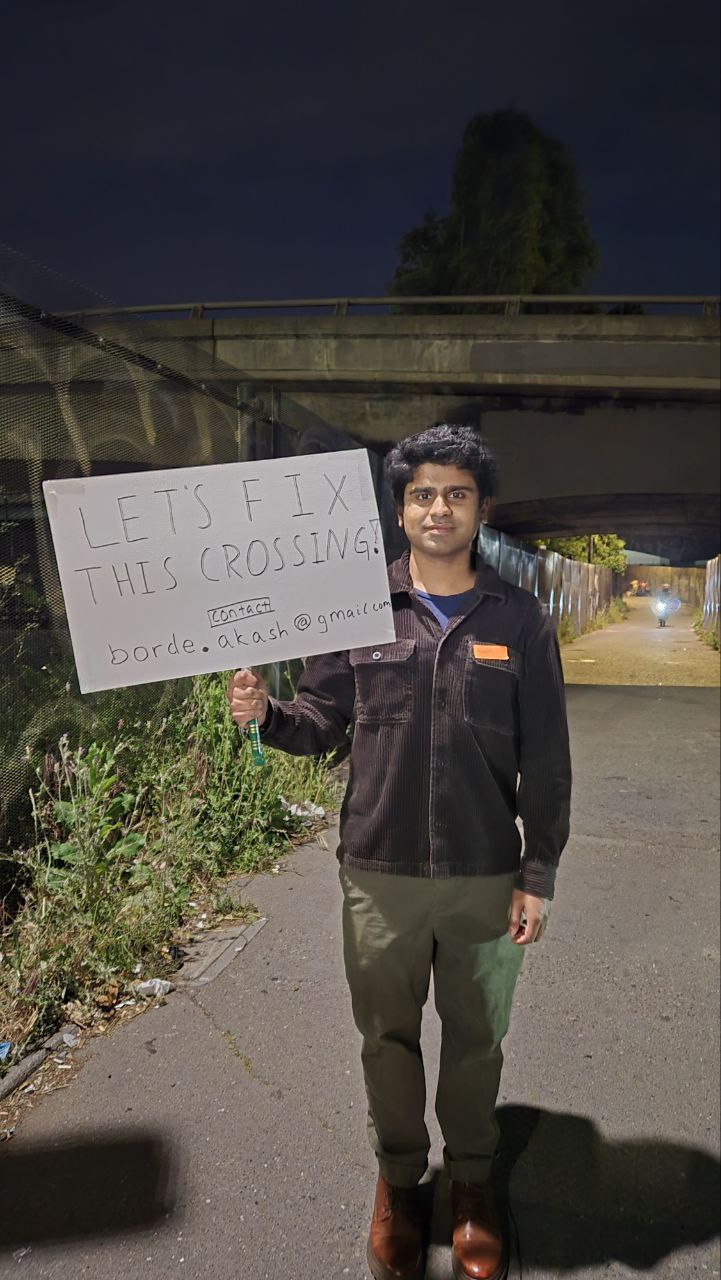 LET'S FIX
THIS CROSSING!
contact
borde.akash@gmail.com